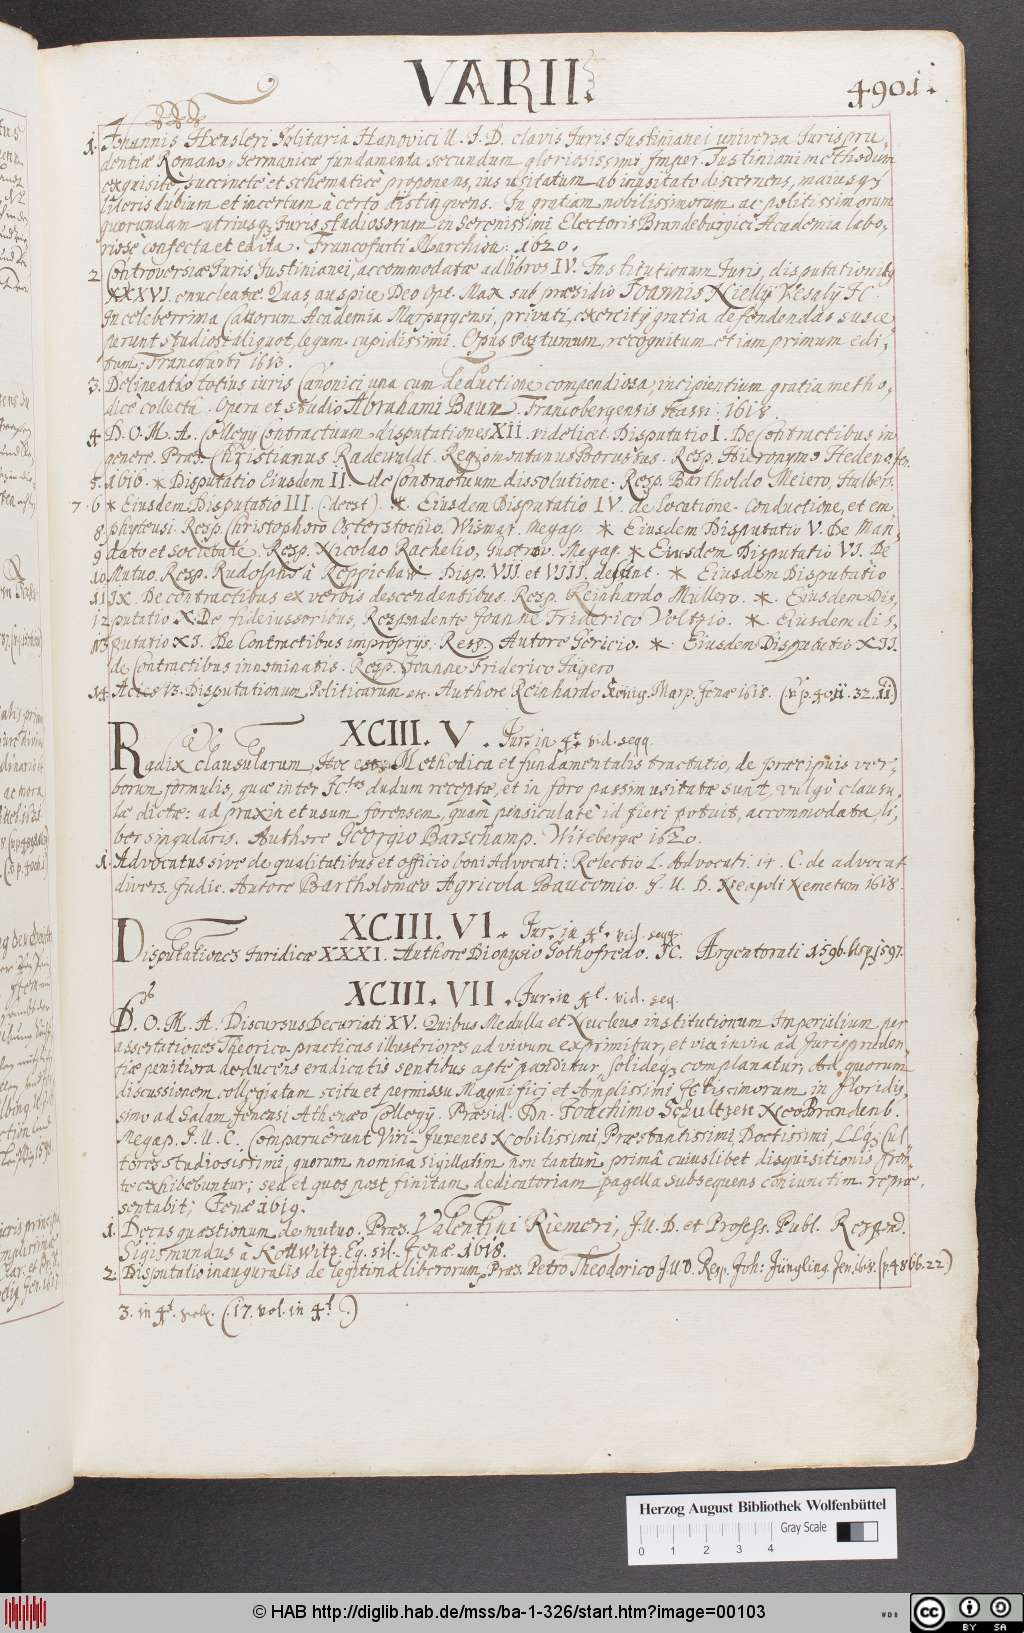 VARII.
4901.
1. Johannis Hensleri Politaria Hanovici U. J. D. clavis Juris Justinianei universa Jurispru-
dentiæ Romano, Germanicæ fundamenta secundum gloriosissimi Imper. Justiniani methodum
exquisitè, succinctè et schematicè proponens, ius usitatum ab inusitato discernens, maiusq;
literis dubium et incertum à certo distinguens. In gratiam nobilissimorum ac politissimorum
quorundam utriusq; Juris studiosorum in Serenissimi Electoris Brandeburgici Academia labo-
riosè confecta et edita. Francofurti Marchion: 1620.
2. Controversiæ Juris Justinianei, accommodatæ ad libros IV. Institutionum Juris, disputationibq
XXXVI. enucleatæ. Quas auspice Deo Opt. Max sub præsidio Joannis Kiellij Vesalij JC.
In celeberrima Cattorum Academia Marpurgensi, privati exercitij gratia defendendas susce-
perunt studiosi aliquot, legum cupidissimi. Opus Postumum, recognitum et iam primum edi-
tum. Francofurti 1613.
3. Delineatio totius iuris Canonici una cum deductione compendiosa, incipientium gratia metho-
dicè collecta. Opera et studio Abrahami Baun. Francobergensis Hassi. 1618.
4 D. O. M. A. Collegij Contractuum disputationes XII. videlicet. Disputatio I. De Contractibus in
genere. Præs. Christianus Radewaldt. Regiomontanus Borussus. Resp. Hieronymo Hedeno
5. 1616. * Disputatio Eiusdem II. de Contractuum dissolutione. Resp. Bartholdo Meiero, Halbers.
7. 6 * Eiusdem Disputatio III. (deest). * Eiusdem Disputatio IV. de locatione. Conductione, et em-
8. phyteusi. Resp. Christophoro Osterstochio, Wismar. Megap. * Eiusdem Disputatio V. De Man-
9 dato et societate. Resp. Nicolao Rachelio, Gustrov. Megap. * Eiusdem Disputatio VI. De
10 Mutuo. Resp. Rudolpho à Reppichaw. Disp. VII. et VIII. desunt. * Eiusdem Disputatio
11 IX. De contractibus ex verbis descendentibus. Resp. Reinhardo Mullero. * Eiusdem Dis-
12 putatio X. De fideiussoribus, Respondente Joanne Friderico Voltzio. * Eiusdem dis-
13 putatio XI. De Contractibus improprijs. Resp. Autore Gericio. * Eiusdem Disputatio XII.
de Contractibus innominatis. Resp. Joanne Friderico Jägero
14. Acies 13. Disputationum Politicarum etc. Authore Reinhardo König. Marp. Jenæ 1618. (v p. 4011. 32. 11)
XCIII. V. Jur. in 4t. vid. seqq.
Radix clausularum, Hoc est: Methodica et fundamentalis tractatio, de præcipuis ver-
borum formulis, quæ inter JCtos dudum receptæ, et in foro passim usitatæ sunt, vulgò clausu-
læ dictæ: ad praxin et usum forensem, quàm pensiculatè id fieri potuit, accommodata, li-
ber singularis. Authore Georgio Barschamp. Witebergæ 1620.
1. Advocatus sive de qualitatibus et officio boni Advocati: Relectio L. Advocati. 14. C. de advocat
divers. Judic. Autore Bartholomæo Agricola Baucomio. J. U. D. Neapoli Nemetum 1618.
XCIII. VI. Jur. in 4t. vid. seqq.
Disputationes Juridicæ XXXI. Authore Dionysio Gothofredo. JC. Argentorati 1596. Usq 1597.
XCIII. VII. Jur. in 4t. vid. seq.
D. O. M. A. Discursus Decuriati XV. Quibus Medulla et Nucleus institutionum Imperialium per
assertationes Theorico-practicas illustriores ad vivum exprimitur, et via invia ad Jurispruden-
tiæ penitiora deducens eradicatis sentibus aptè panditur, solideq; complanatur, Ad quorum
discussionem collegiatam scitu et permissu Magnifici et Amplissimi JCtissimorum in floridis-
simo ad Salam Jenensi Athenæo Collegij. Præsid. Dn. Joachimo Schultzen NeoBrandenb.
Megap. J. U. C. Comparuêrunt Viri-Juvenes Nobilissimi, Præstantissimi, Doctissimi, LLq; Cul-
tores studiosissimi, quorum nomina sigillatim non tantum prima cuiuslibet disquisitionis fron-
te exhibebuntur; sed et quos post finitam dedicatoriam pagella subsequens coniunctim repræ-
sentabit; Jenæ 1619.
1. Decas quæstionum de mutuo. Præs. Valentini Riemeri, J. U. D. et Profess. Publ. Respond.
Sigismundus à Kottwitz Eq. sil. Jenæ 1618.
2. Disputatio inauguralis de legitima liberorum, Præs. Petro Theodorico JUD. Resp. Joh: Jüngling. Jen. 1618. (p 4866. 22)
3. in 4t. (17. vol. in 4t.)
Herzog August Bibliothek Wolfenbüttel
Gray Scale
0 1 2 3 4
© HAB http://diglib.hab.de/mss/ba-1-326/start.htm?image=00103
WDB
cc BY SA